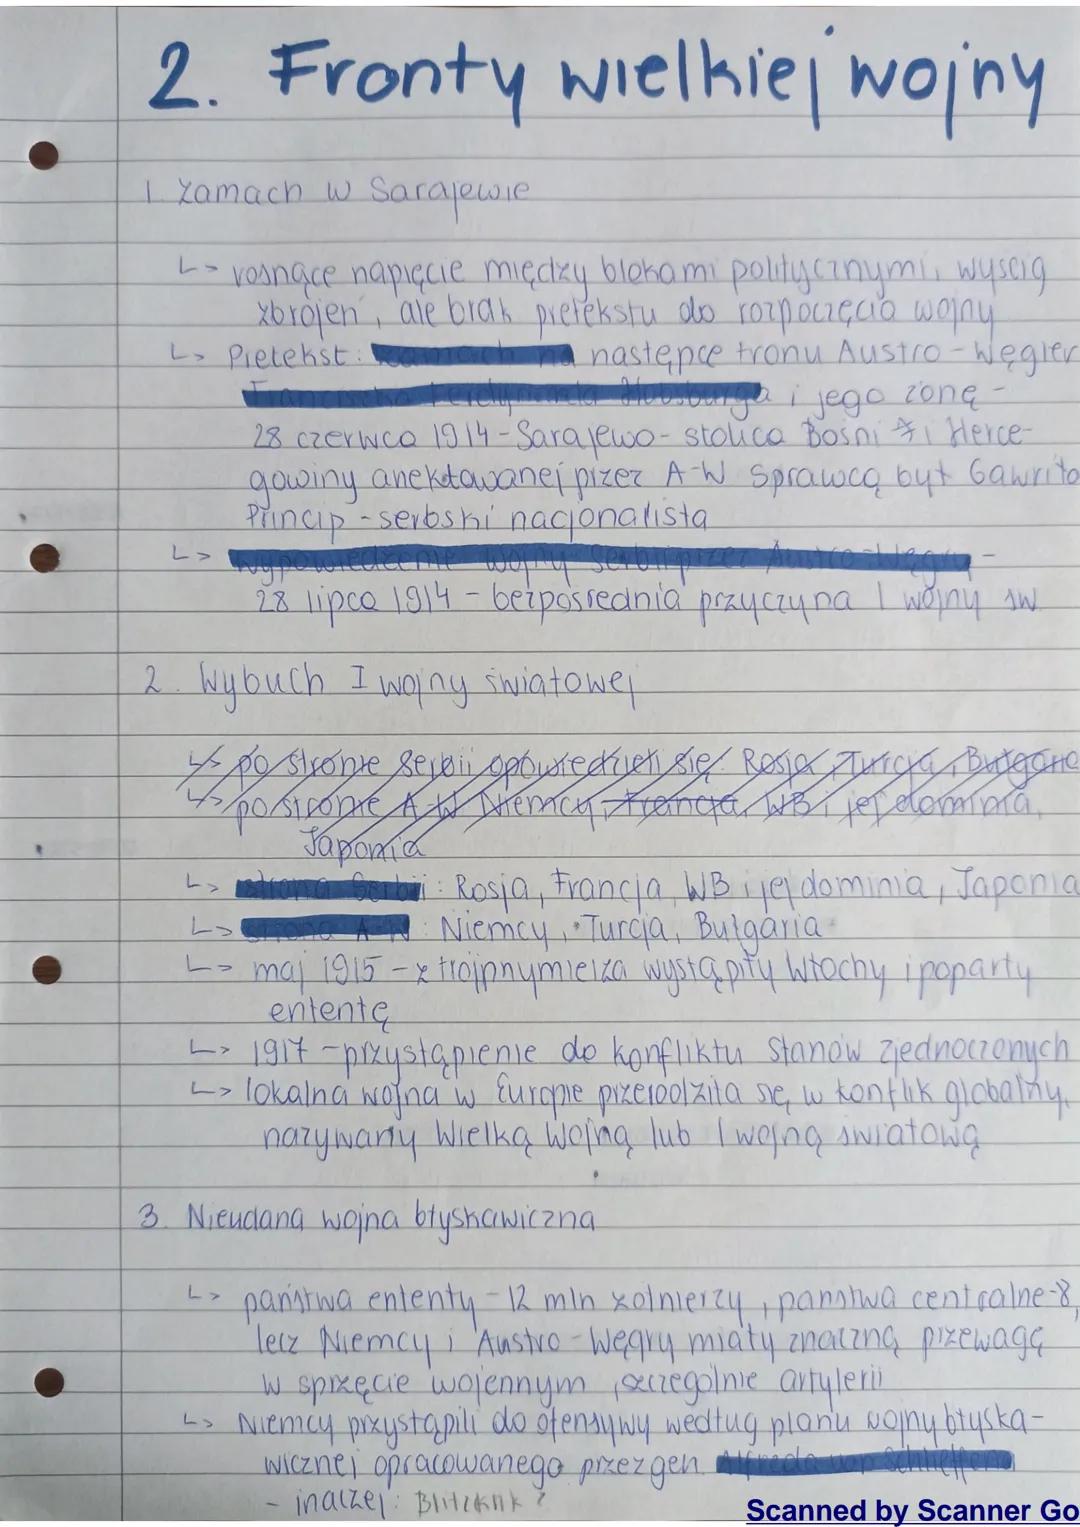 2. Fronty wielkiej wojny
1. Zamach w Sarajewie
↳ rosnące napięcie między blokami politycznymi, wyścig
zbrojeń, ale brak pretekstu do rozpoczęcia wojny
↳ Pretekst: zamach na następcę tronu Austro-Węgier
Franciszka Ferdynanda Habsburga i jego żonę -
28 czerwca 1914 - Sarajewo - stolica Bośni i Herce-
gowiny anektowanej przez A-W Sprawcą był Gawriło
Princip - serbski nacjonalista
↳ wypowiedzenie wojny Serbii przez Austro-Węgry -
28 lipca 1914 - bezpośrednia przyczyna I wojny św.
2. Wybuch I wojny światowej
↳ po stronie Serbii opowiedzieli się Rosja, Turcja, Bułgaria
↳ po stronie A-W Niemcy, Francja, WB i jej dominia,
Japonia
↳ strona Serbii: Rosja, Francja, WB i jej dominia, Japonia
↳ strona A-W: Niemcy, Turcja, Bułgaria
↳ maj 1915 - z trójprzymierza wystąpiły Włochy i poparły
ententę
↳ 1917 - przystąpienie do konfliktu Stanów Zjednoczonych
↳ lokalna wojna w Europie przerodziła się w konflik globalny,
nazywany Wielką Wojną lub I wojną światową
3. Nieudana wojna błyskawiczna
↳ państwa ententy - 12 mln żołnierzy, państwa centralne - 8,
lecz Niemcy i Austro-Węgry miały znaczną przewagę
w sprzęcie wojennym, szczególnie artylerii
↳ Niemcy przystąpili do ofensywy według planu wojny błyska-
wicznej opracowanego przez gen. Alfreda von Schlieffena
- inaczej: Blitzkrik?
Scanned by Scanner Go